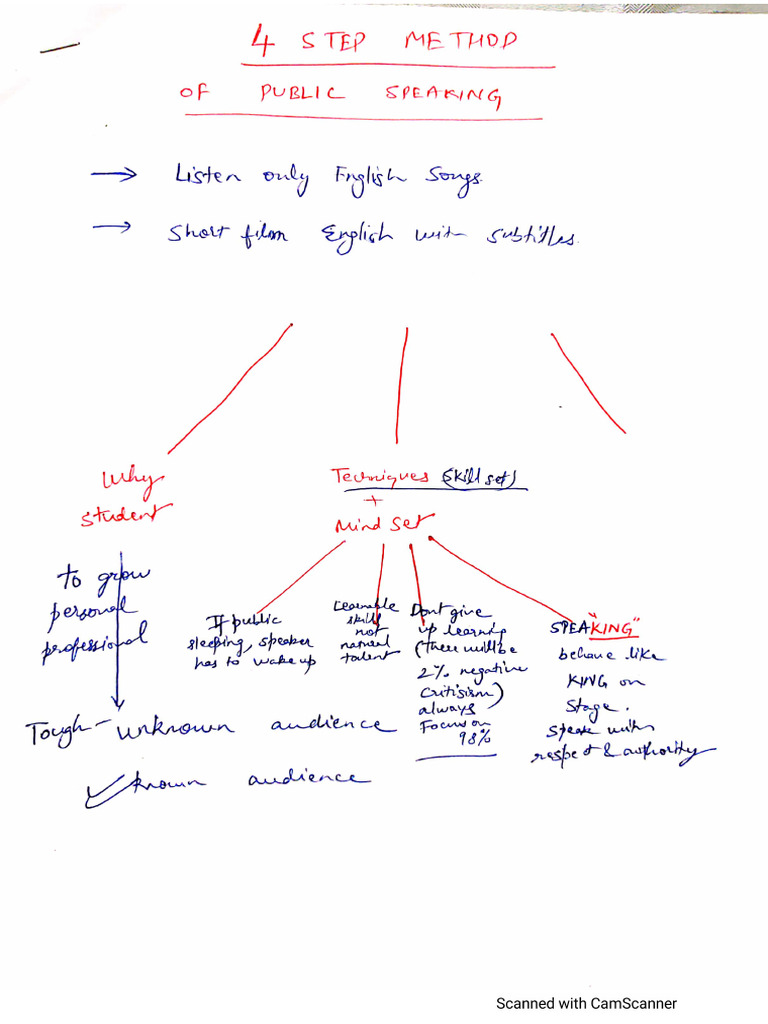 4 STEP METHOD
OF PUBLIC SPEAKING
→ Listen only English Songs.
→ Short film English with subtitles.
Why
student
to grow
personal
professional
Tough - unknown audience
✓ known audience
Techniques (skill set)
+
Mind Set
If public
sleeping, speaker
has to wake up
Learnable
skill
not
natural
talent
Dont give
up learning
(there will be
2% negative
critisism)
always
Focus on
98%
SPEA"KING"
behave like
KING on
stage.
speak with
respect & authority
Scanned with CamScanner